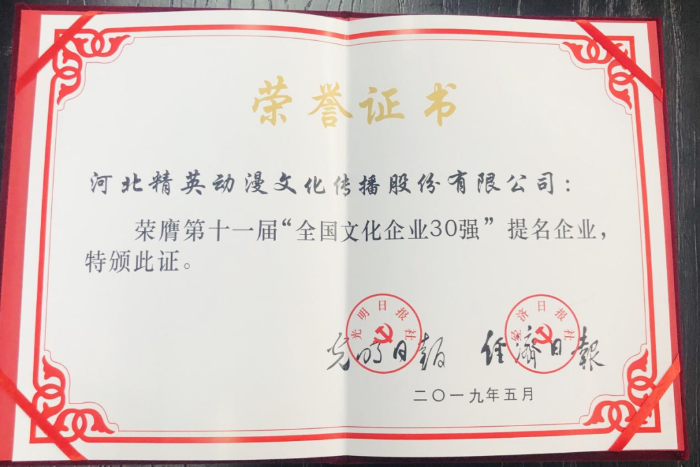 荣誉证书
河北精英动漫文化传播股份有限公司：
荣膺第十一届“全国文化企业30强”提名企业，
特颁此证。
光明日报社
经济日报社
光明日报 经济日报
二〇一九年五月